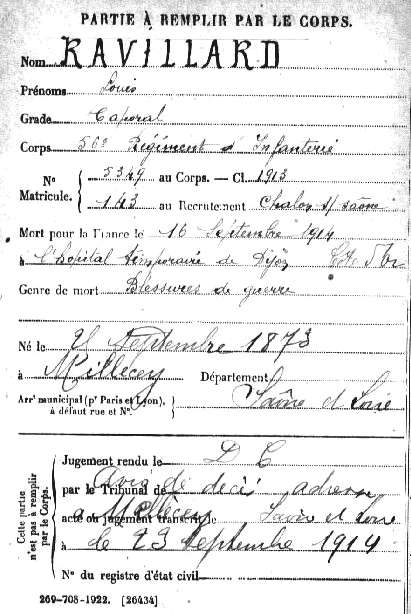 PARTIE À REMPLIR PAR LE CORPS.
Nom RAVILLARD
Prénoms Louis
Grade Caporal
Corps 56e Régiment d'Infanterie
No Matricule. { 5349 au Corps. — Cl. 1913
143 au Recrutement Chalon s/ Saône
Mort pour la France le 16 Septembre 1914
à l'hôpital temporaire de Dijon
Genre de mort Blessures de guerre
Né le Septembre 1873
à Mellecey Département Saône et Loire
Arrt municipal (pr Paris et Lyon), à défaut rue et No.
Cette partie n'est pas à remplir par le Corps.
Jugement rendu le D C
par le Tribunal de Avis de décès adressé
acte ou jugement transcrit le à Mellecey Saône et Loire
à le 23 Septembre 1914
No du registre d'état civil
269-708-1922. [26434]